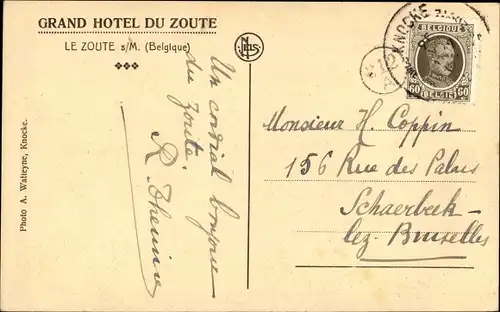 GRAND HOTEL DU ZOUTE
LE ZOUTE s/M. (Belgique)
Photo A. Watteyne, Knocke.
Un cordial bonjour
du Zoute.
NELS
KNOCKE
12
A
BELGIQUE
60 BELGIË 60
Monsieur H. Coppin
156 Rue des Palais
Schaerbeek-
lez-Bruxelles